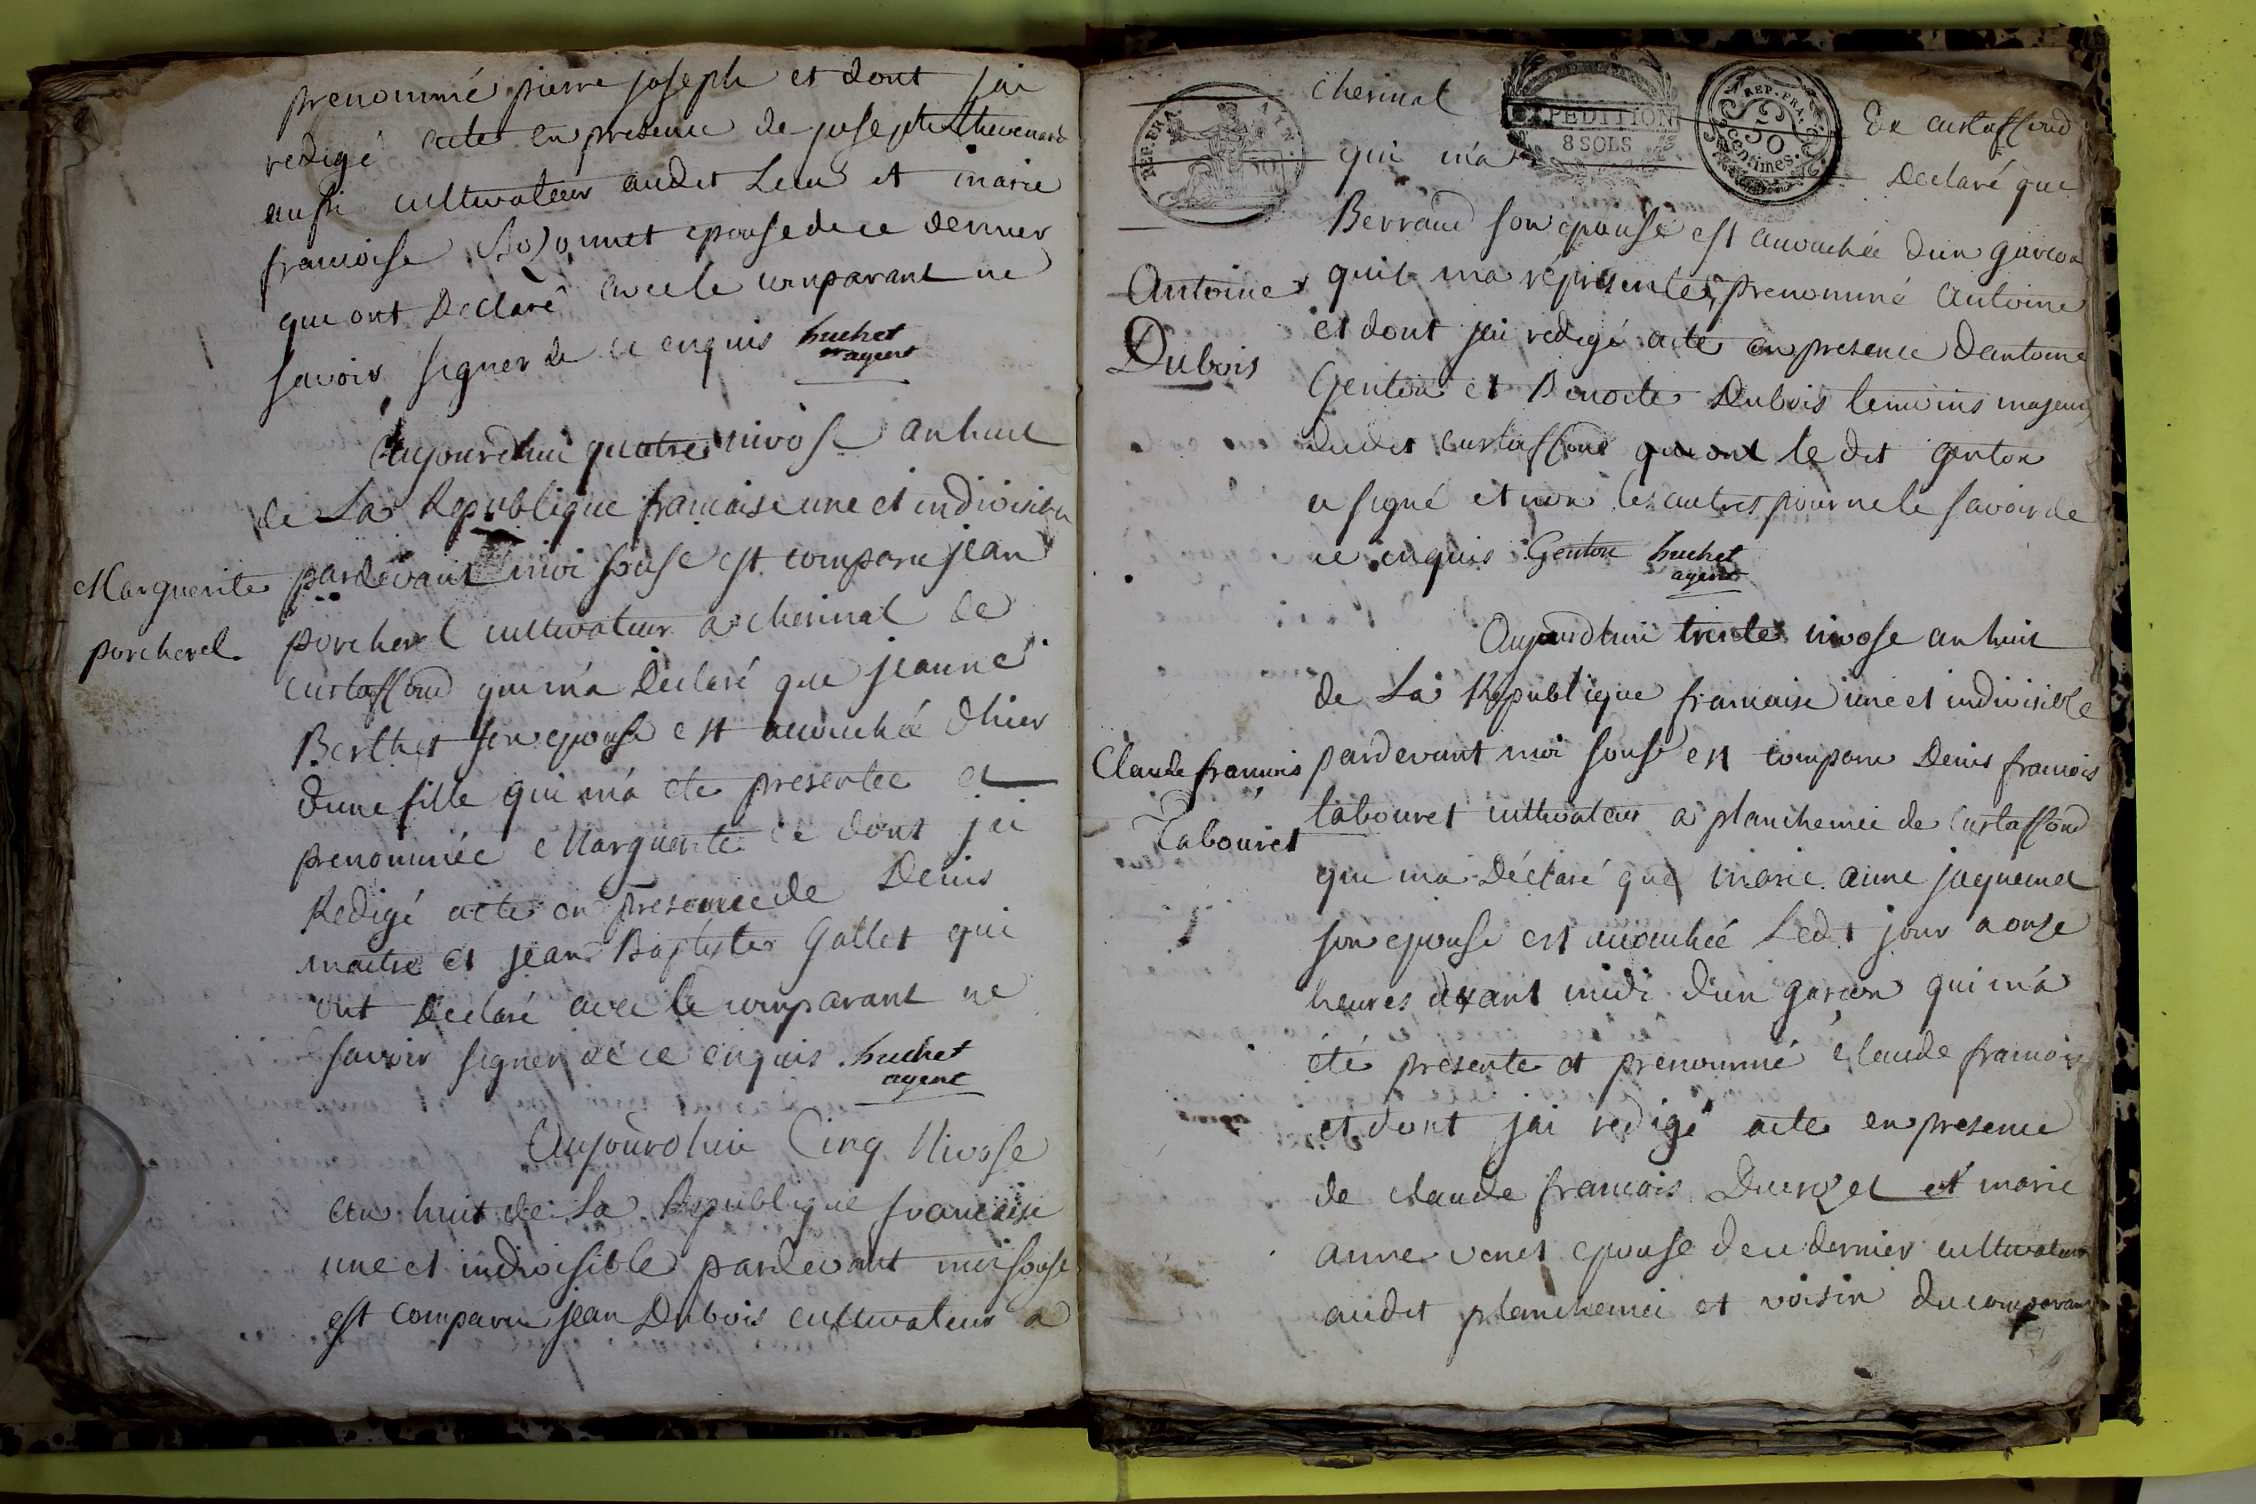 prenommé pierre joseph et dont jai
redigé acte en presence de joseph thevenard
aussi cultivateur audit Lieu et marie
francoise Bozonnet epouse de ce dernier
que ont Declaré avec le comparant ne
savoir signer de ce enquis buchet
agent
Aujourdhui quatre nivose an huit
de La Republique francaise une et indivisible
Marguerite
porcherel
pardevant moi sousse est comparu jean
porcherel cultivateur a cherinal de
curtaffond qui m'a Declaré que jeanne
Berthet son epouse est acouchée d'hier
dune fille qui m'a ete presentee et
prenommée Marguerite de dont jai
Redigé acte en presence de Denis
maitre et jean Baptiste Gallet qui
ont Declaré avec le comparant ne
savoir signer de ce enquis buchet
agent
Aujourdhui Cinq Nivose
an huit de La Republique francaise
une et indivisible pardevant moi sousse
est comparu jean Dubois cultivateur a
cherinal de curtaffond
REP. FRA. AIN.
EXPEDITION
8 SOLS
REP. FRA.
50
Centimes.
qui m'a Declaré que
Berraud son epouse est acouchée d'un garcon
Antoine
Dubois
quil ma représenté, prenommé antoine
et dont jai redigé acte en presence d'antoine
Genton et Benoite Dubois temoins majeurs
dudit curtaffond que ont le dit genton
a signé et non les autres pour ne le savoir de
ce enquis Genton buchet
agent
Aujourdhui trente nivose an huit
de La République francaise une et indivisible
Claude francois
Tabouret
pardevant moi sousse est comparu Denis francois
tabouret cultivateur a planchemei de Curtaffond
qui ma Déclaré que marie anne jaquemet
son epouse est acouchée Ledt jour a onze
heures avant midi d'un garcon qui m'a
été presenté et prenommé Claude francois
et dont jai redigé acte en presence
de claude francois et marie
anne venet epouse de ce dernier cultivateur
audit planchemei et voisin du comparant